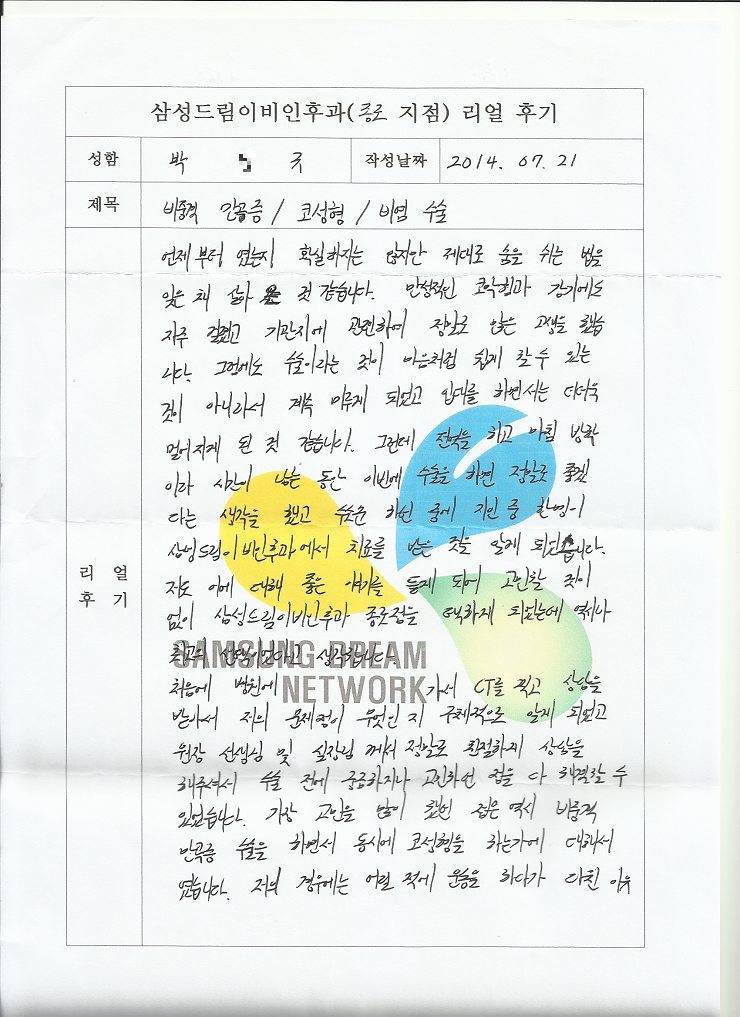 삼성드림이비인후과(종로 지점) 리얼 후기
성함 박 국 작성날짜 2014. 07. 21
제목 비중격 만곡증 / 코성형 / 비염 수술
언제 부터 였는지 확실하지는 않지만 제대로 숨을 쉬는 법을
잊은 채 살아 온 것 같습니다. 만성적인 코막힘과 감기에도
자주 걸렸고 기관지에 관련하여 정말로 많은 고생을 했습
니다. 그럼에도 수술이라는 것이 마음처럼 쉽게 할 수 있는
것이 아니라서 계속 미루게 되었고 입대를 하면서는 더더욱
멀어지게 된 것 같습니다. 그런데 전역을 하고 마침 방학
이라 시간이 남는 동안 이번에 수술을 하면 정말로 좋겠
다는 생각을 했고 수소문 하던 중에 지인 중 한명이
삼성드림이비인후과에서 치료를 받은 것을 알게 되었습니다.
저도 이에 대해 좋은 얘기를 듣게 되어 고민할 것이
없이 삼성드림이비인후과 종로점을 택하게 되었는데 역시나
최고의 선택이었다고 생각합니다.
SAMSUNG DREAM
NETWORK
처음에 병원에 가서 CT를 찍고 상담을
받아서 저의 문제점이 무엇인 지 구체적으로 알게 되었고
원장 선생님 및 실장님 께서 정말로 친절하게 상담을
해주셔서 수술 전에 궁금하거나 고민하던 점을 다 해결할 수
있었습니다. 가장 고민을 많이 했던 점은 역시 비중격
만곡증 수술을 하면서 동시에 코성형을 하는가에 대해서
였습니다. 저의 경우에는 어릴 적에 운동을 하다가 다친 이유
리 얼
후 기